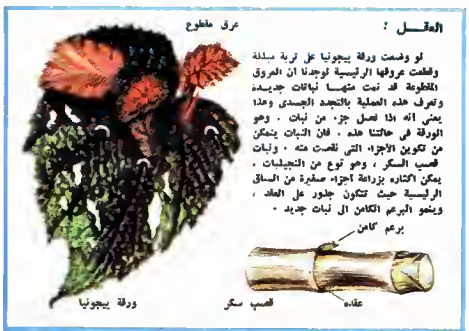 العقـــل :
لو وضعت ورقة بيجونيا على تربة مبتلة
وقطعت عروقها الرئيسية لوجدنا ان العروق
المقطوعة قد نمت منهـــا نباتات جديـــدة
وتعرف هذه العملية بالتجدد الجسدى وهذا
يعنى أنه اذا فصل جزء من نبات . وهو
الورقة فى حالتنا هذه . فان النبات يتمكن
من تكوين الأجزاء التى نقصت منه . ونبات
قصب السكر ، وهو نوع من النجيليات .
يمكن اكثاره بزراعة أجزاء صغيرة من الساق
الرئيسية حيث تتكون جذور على العقد ،
وينمو البرعم الكامن الى نبات جديد .
عرق مقطوع
ورقة بيجونيا
برعم كامن
عقده
قصب سكر